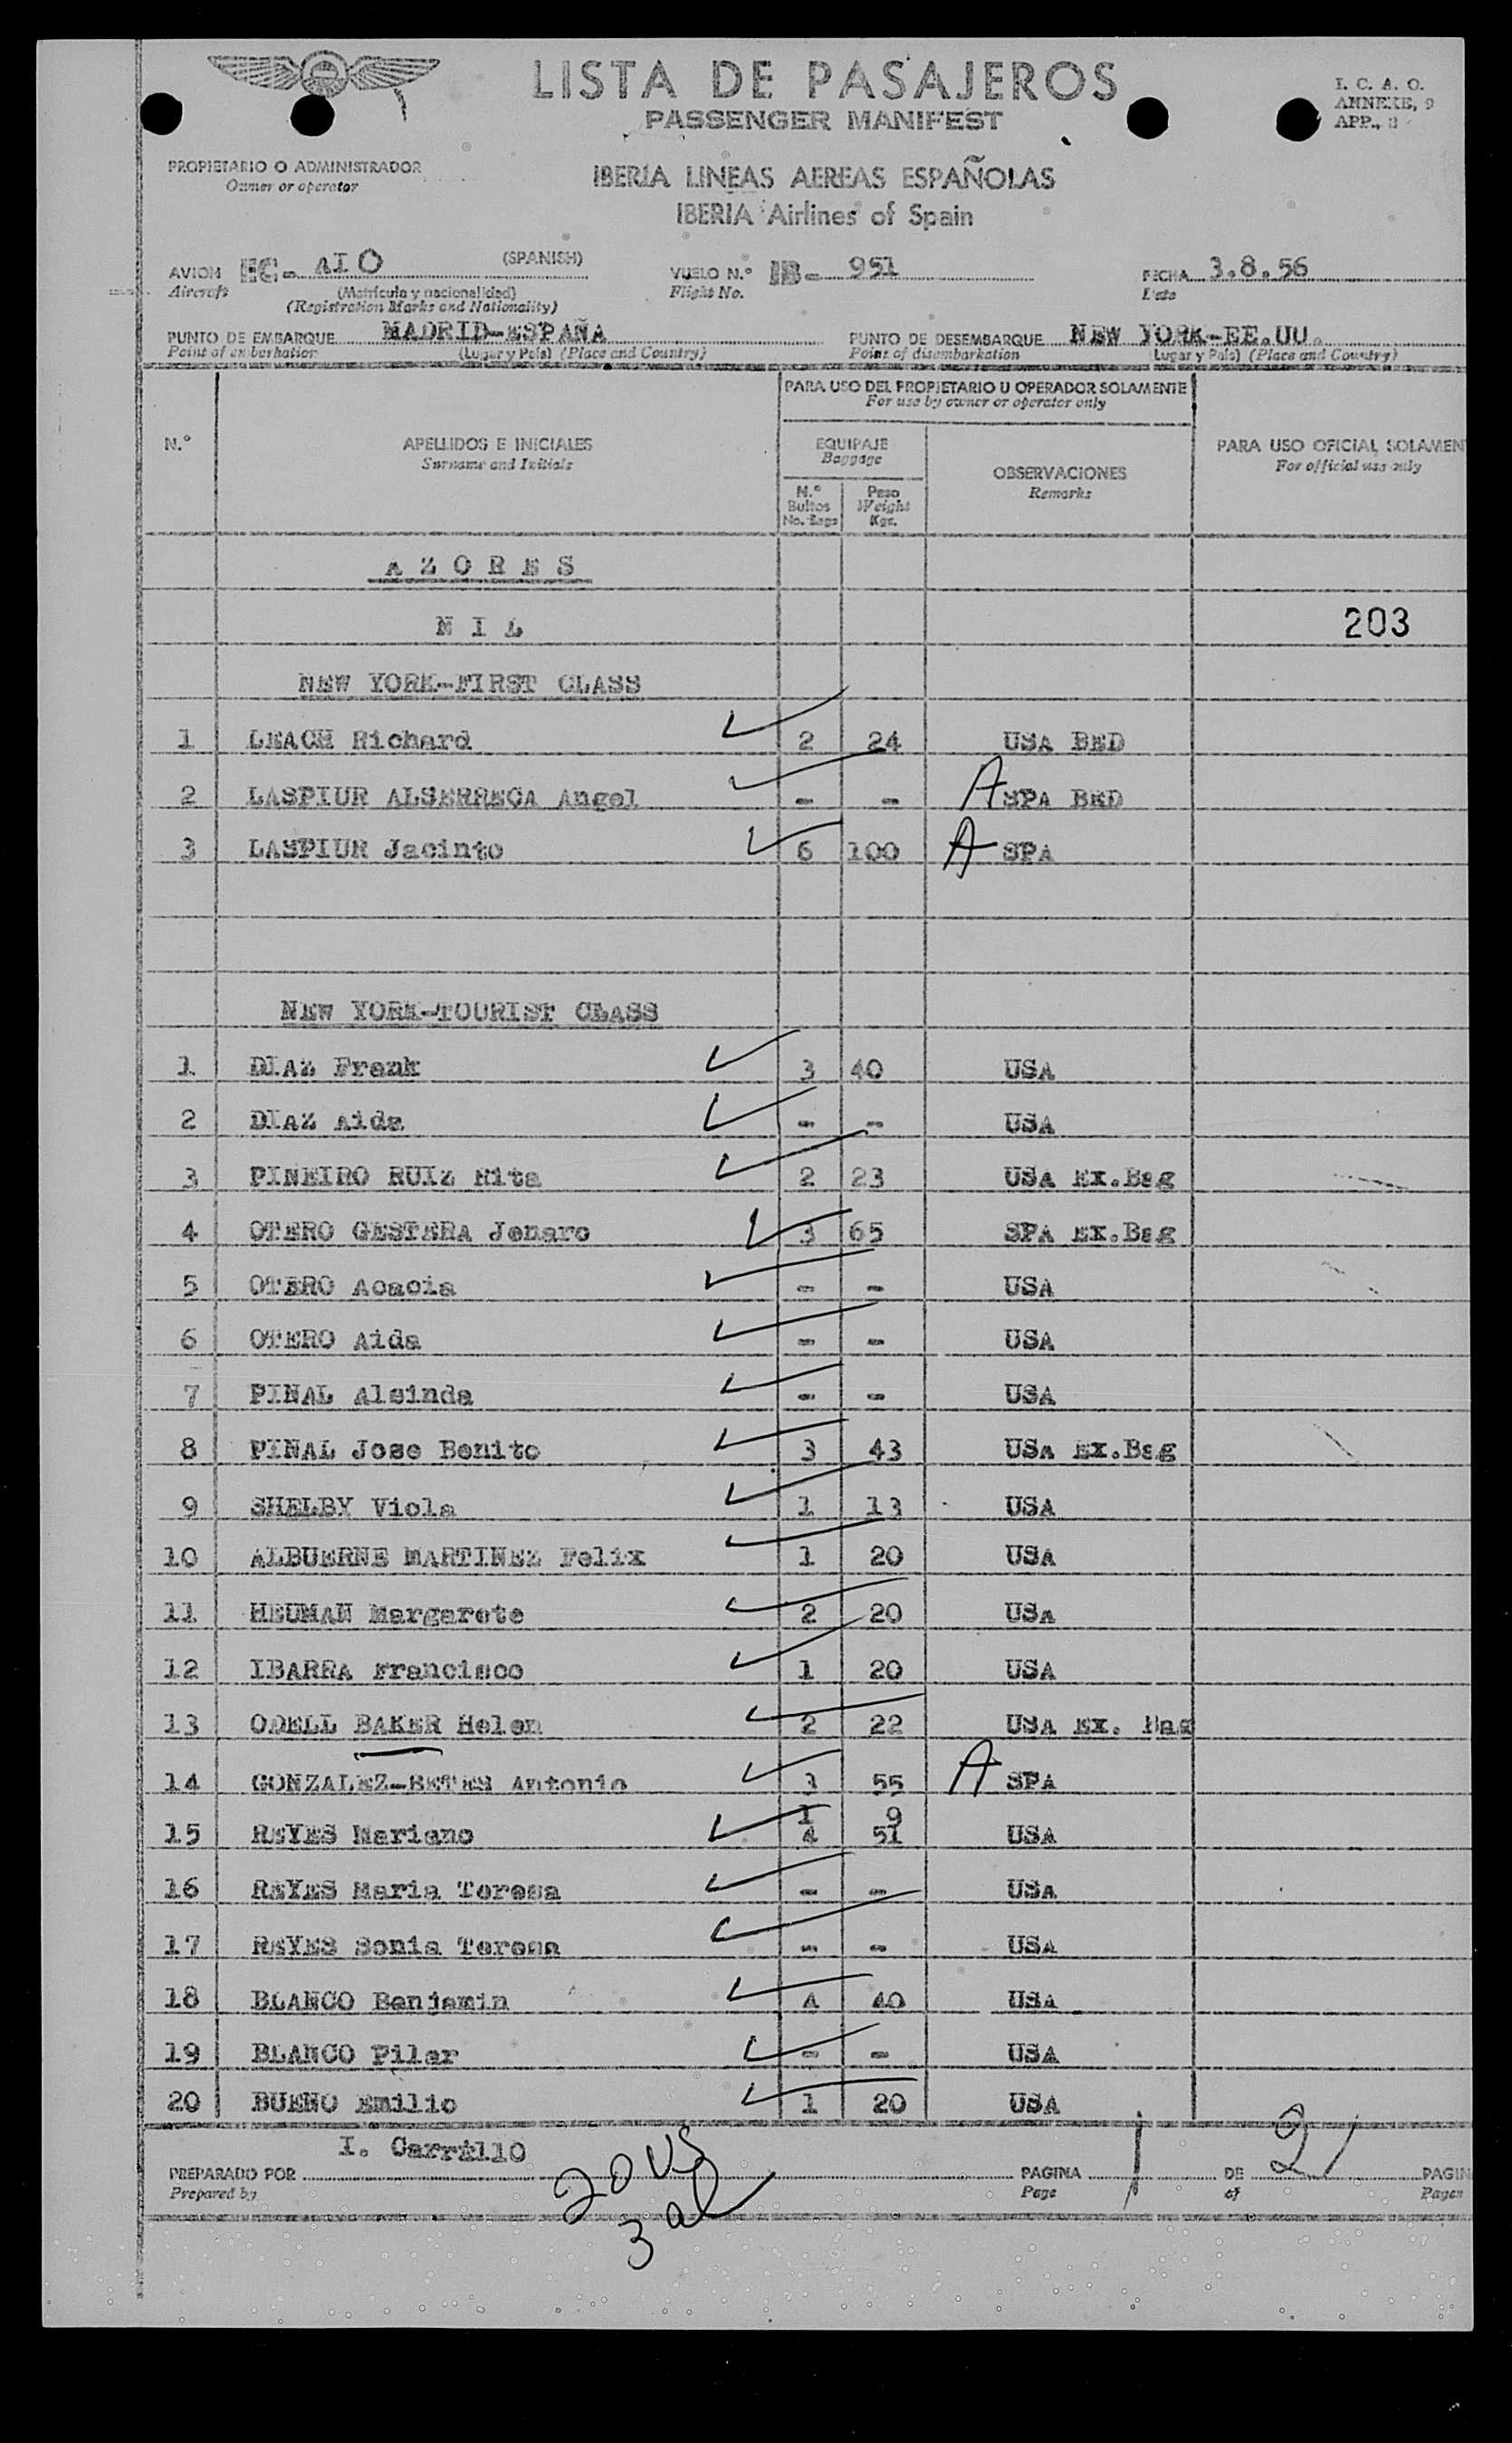 LISTA DE PASAJEROS
PASSENGER MANIFEST
I. C. A. O.
ANNEXE, 9
APP., 3
PROPIETARIO O ADMINISTRADOR
Owner or operator
IBERIA LINEAS AEREAS ESPAÑOLAS
IBERIA Airlines of Spain
AVION EC- AIO (SPANISH) VUELO N.° IB- 951 FECHA 3.8.56
Aircraft (Matrícula y nacionalidad) Flight No. Date
(Registration Marks and Nationality)
PUNTO DE EMBARQUE MADRID-ESPAÑA PUNTO DE DESEMBARQUE NEW YORK-EE.UU.
Point of embarkation (Lugar y País) (Place and Country) Point of disembarkation (Lugar y País) (Place and Country)
PARA USO DEL PROPIETARIO U OPERADOR SOLAMENTE
For use by owner or operator only
N.° APELLIDOS E INICIALES EQUIPAJE OBSERVACIONES PARA USO OFICIAL SOLAMEN
Surname and Initials Baggage Remarks For official use only
N.° Bultos Peso
No. Bags Weight Kgs.
AZORES
NIL 203
NEW YORK-FIRST CLASS
1 LEACH Richard 2 24 USA BED
2 LASPIUR ALSERRECA Angel - - A SPA BED
3 LASPIUR Jacinto 6 100 A SPA
NEW YORK-TOURIST CLASS
1 DIAZ Frank 3 40 USA
2 DIAZ Aida - - USA
3 PINEIRO RUIZ Rita 2 23 USA Ex.Bag
4 OTERO GESTERA Jenaro 3 65 SPA Ex.Bag
5 OTERO Acacia - - USA
6 OTERO Aida - - USA
7 PIÑAL Alsinda - - USA
8 PIÑAL Jose Benito 3 43 USA Ex.Bag
9 SHELBY Viola 1 13 USA
10 ALBUERNE MARTINEZ Felix 1 20 USA
11 HEUMAN Margarete 2 20 USA
12 IBARRA Francisco 1 20 USA
13 ODELL BAKER Helen 2 22 USA Ex. Bag
14 GONZALEZ-BETES Antonio 3 55 A SPA
1 9
15 REYES Mariano 4 51 USA
16 REYES Maria Teresa - - USA
17 REYES Sonia Teresa - - USA
18 BLANCO Benjamin 4 40 USA
19 BLANCO Pilar - - USA
20 BUENO Emilio 1 20 USA
I. Carrillo
PREPARADO POR PAGINA 1 DE 2 PAGIN
Prepared by Page of Pages
20 US
3 al